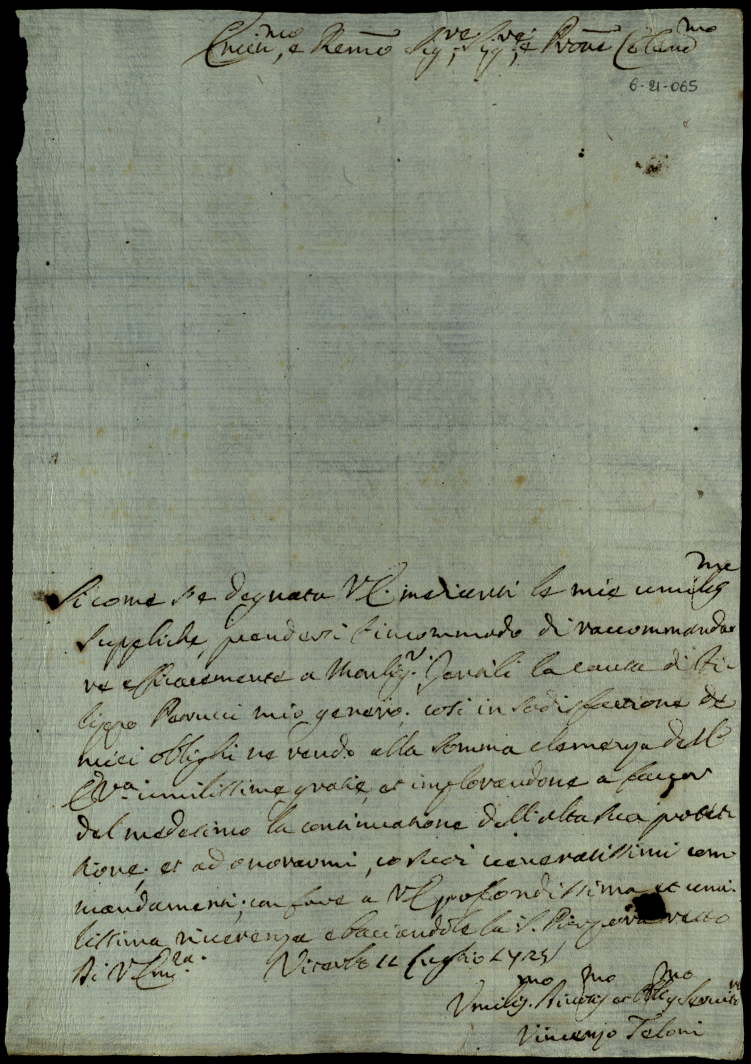 Emin.mo, e Remo Sig.re, Sig.re, e Prone Colend.mo
6-21-065
Si come s'è degnata V.E. medianti le mie umilis.me
suppliche, prendersi l'incommodo di raccommanda-
re efficacemente a Monsig.r la causa di Fi-
lippo Parucci mio genero, così in sodisfazione de
miei oblighi ne rendo alla somma clemenza dell'
E.V.a umilissime grazie, et implorandone a favor
del medesimo la continuazione dell'alta sua protet-
tione, et ad onorarmi, co suoi veneratissimi com-
mandamenti, con fare a V.E. profondissima, et umi-
lissima riverenza e baciandole la S. resto
Di V. Em.za Viterbo 11 Luglio 1725
Umilis.mo Divotis.mo et Oblig.mo Servit.re
Vincenzo Teloni